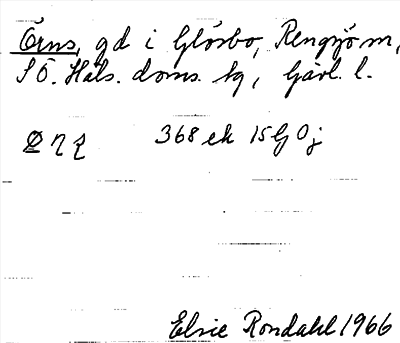 Örns, gd i Glösbo, Rengsjö m,
S Ö. Häls. doms. hg, Gävl. l.
368 ek 15 G 0 j
Elsie Rondahl 1966